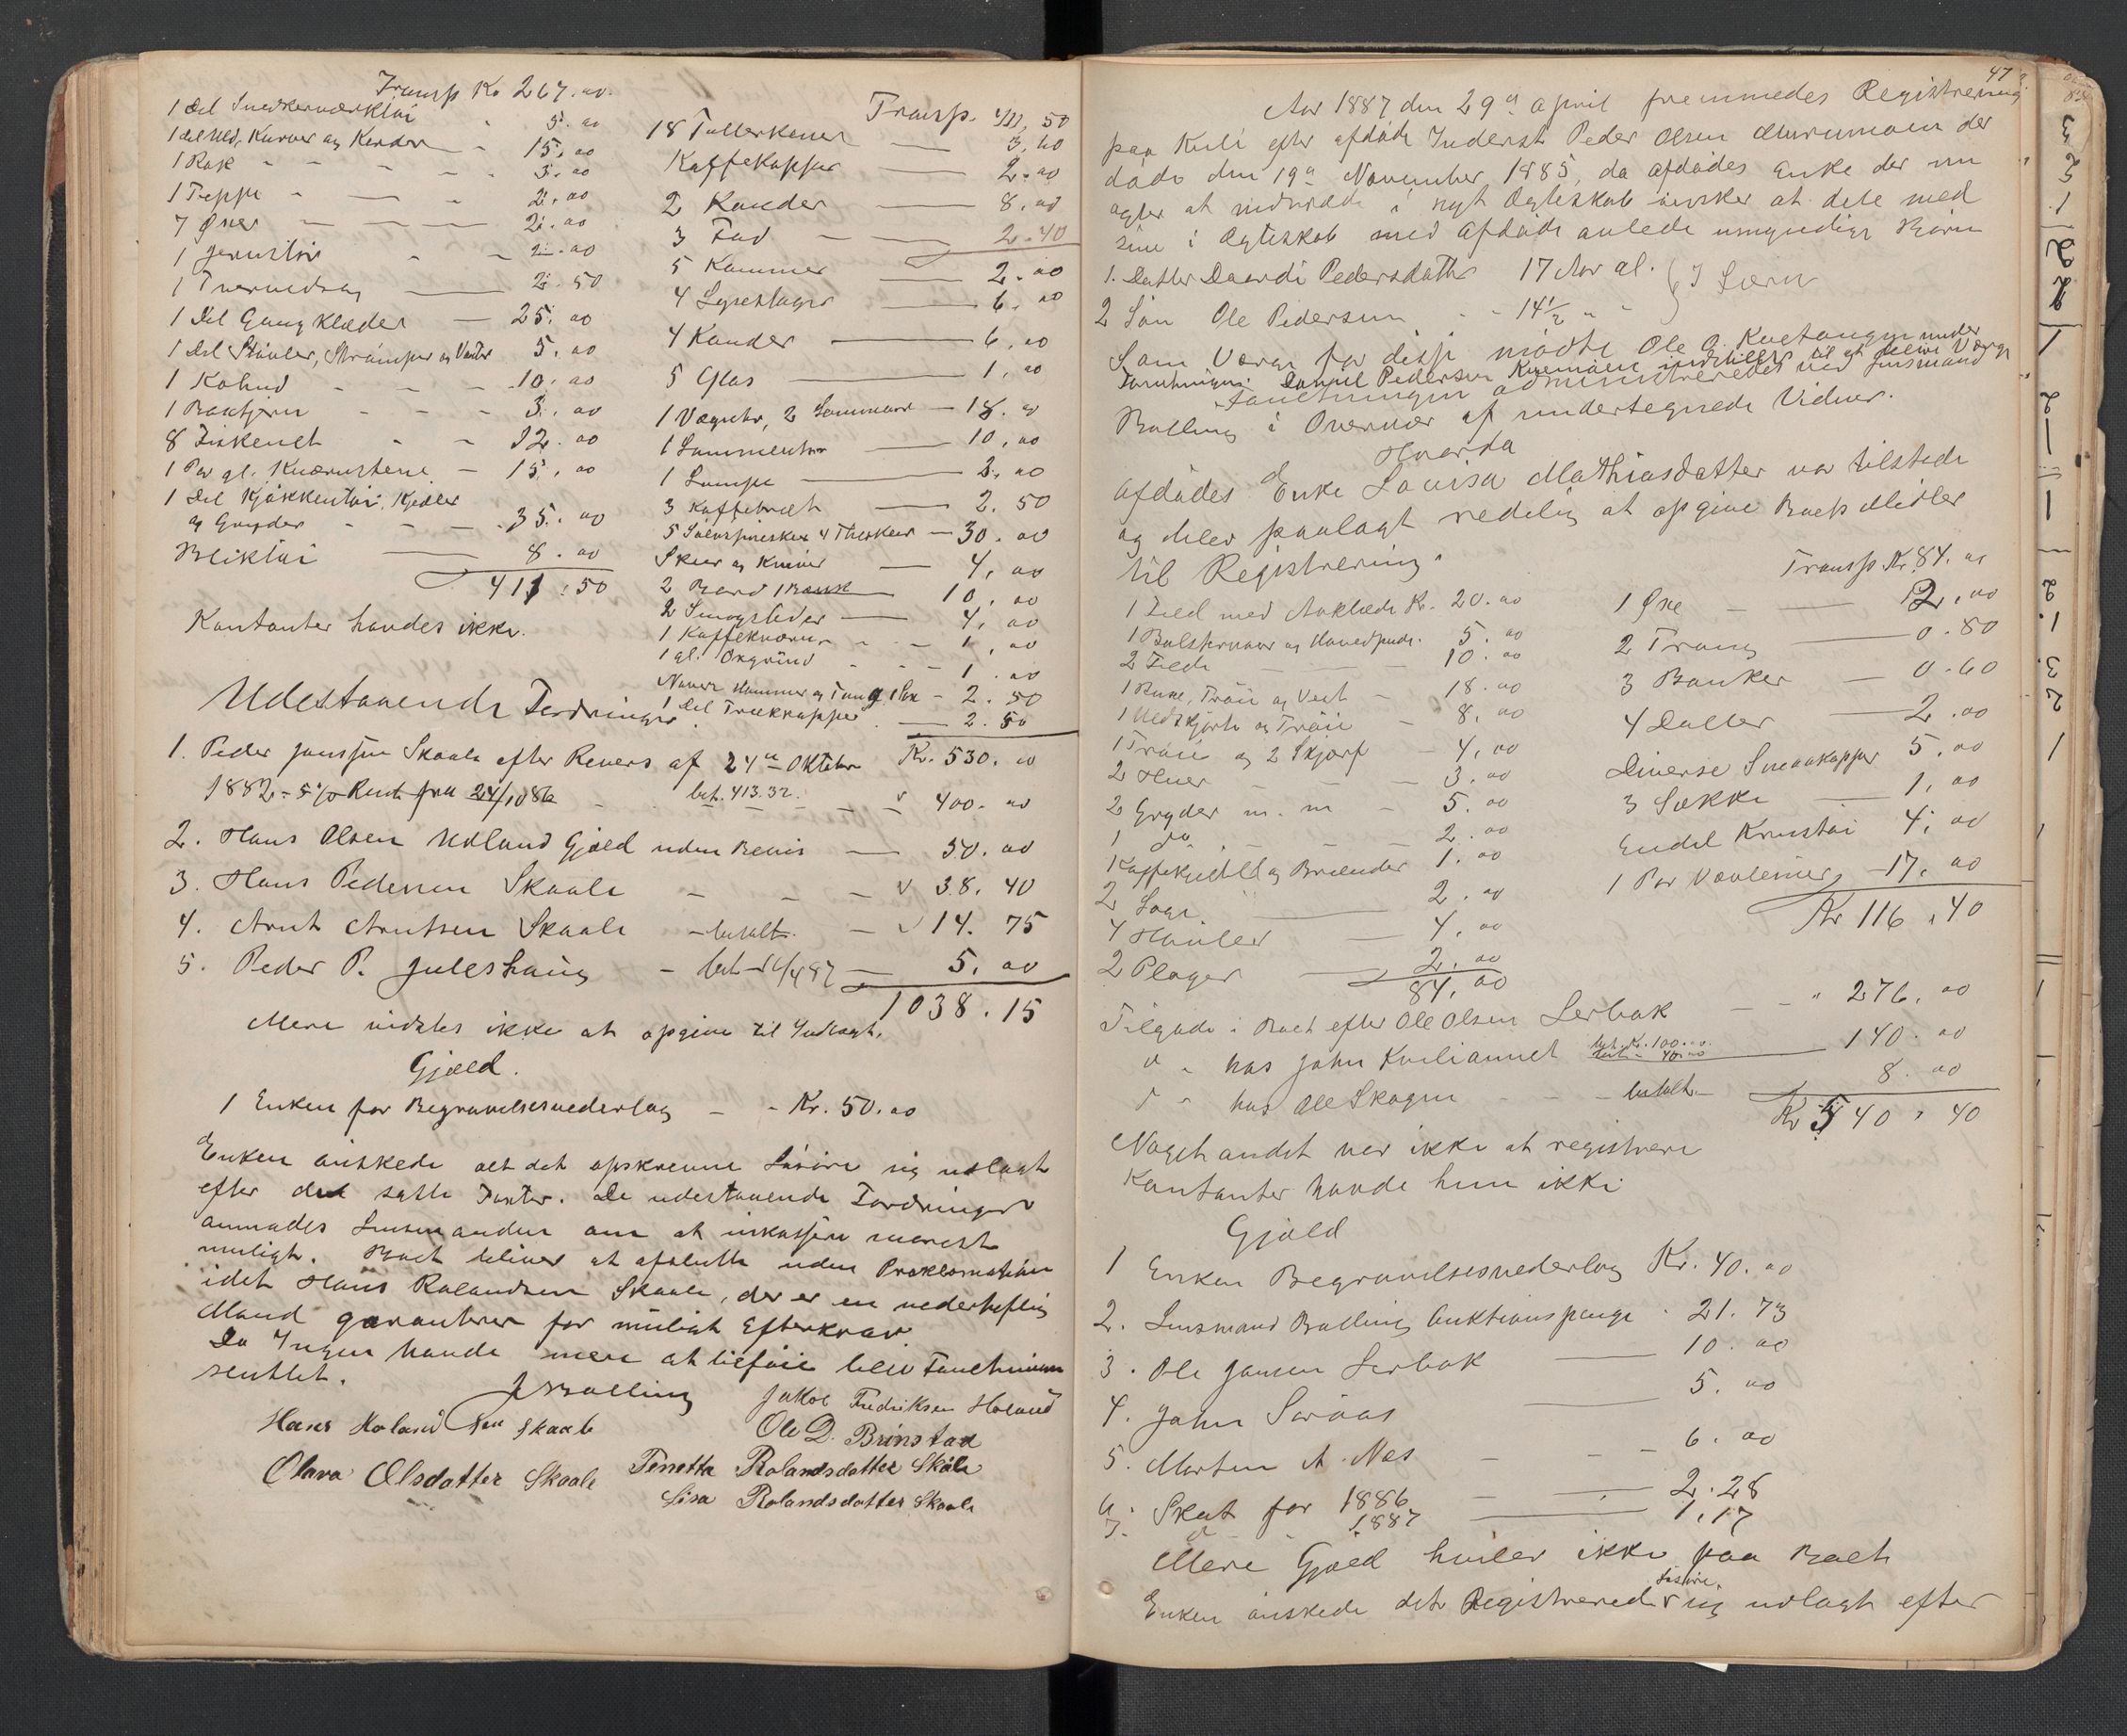 Transp Kr 267.00
1 Del Snedkerværktøi " 5.00
1 del Uld, Kurver og Karder - 15.00
1 Rok - - - - 3.00
1 Teppe - - - 2.00
7 Øxer - - - 2.00
1 - - 2.00
1 Tvervedsag - 2.50
1 Del Gangklæder - 25.00
1 Del Støvler, Strømper og Vanter 5.00
1 - - - 10.00
1 - - - 3.00
8 Fiskenet - - 12.00
1 Par gl. Kværnstene - 15.00
1 Del Kjøkkentøi, Kjedler
og Gryder - - - 35.00
Bliktøi - 8.00
411.50
Kontanter havdes ikke.
Transp. 411,50
18 Tallerkener - 3,60
Kaffekopper - 2.00
2 Kander - 8.00
3 Fad - 2.40
5 Kummer - 2.00
4 Lysestager - 6.00
4 Kander - 6.00
5 Glas - 1.00
1 Væguhr, 2 - 18.00
1 Lommeuhr - 10.00
1 Lampe - 2.00
3 Kaffebræt - 2.50
5 Sølvspiseskeer 4 Theskeer - 30.00
Skeer og Knive - 4.00
2 Bord 1 Bænk - 10.00
2 - 4.00
1 Kaffekværn - - 1.00
1 gl. - - 1.00
Naver Hammer og Tang 1 - 2.50
1 Del - 2.50
Udestaaende Fordringer.
Kr. 530.00
1. Peder Janssen Skaale efter Revers af 24de Oktober
1882 - 5% Rente fra 24/10 86 bet. 413.32. - - " 400.00
2. Hans Olsen Udland Gjæld uden Bevis - 50.00
3. Hans Pedersen Skaale - - - " 38.40
4. Arnt Arntsen Skaale - betalt - " 14.75
5. Peder P. Juleshaug - bet - /4 87 - 5.00
1038.15
Mere vidstes ikke at opgive til Indtægt.
Gjæld.
1 Enken for Begravelsesvederlag - - Kr. 50.00
Enken ønskede alt det opskrevne Løsøre sig udlagt
efter den satte Taxter. De udestaaende Fordringer
anmodes Lensmanden om at inkassere snarest
muligt. Boet bliver at afslutte uden Proklamation
idet Hans Rolandsen Skaale, der er en vederheftig
Mand garanterer for muligt Efterkrav
Da Ingen havde mere at tilføie blev Forretningen
sluttet.
J Balling
Jakob Fredriksen Holand
Hans Roland sen Skaale
Ole D. Brinstad
Olava Olsdatter Skaale
Rolandsdatter Skåle
Lisa Rolandsdatter Skaale
47
Aar 1887 den 29de april fremmedes Registrering
paa Kvli efter afdøde Inderst Peder Olsen der
døde den 19de November 1885, da afdødes Enke der nu
agter at indtræde i nyt Ægteskab ønsker at dele med
sine i Ægteskab med Afdøde avlede umyndige Børn
1. Datter Daardi Pedersdatter 17 Aar gl. } 3 Læren
2 Søn Ole Pedersen - - 14½ " "
Som Værge for disse mødte Ole A. under
Forretningen. Daniel Pedersen indstilles til at blive Værge
Forretningen administreredes ved Lensmand
Balling i Overvær af undertegnede Vidner.
Hvorda
Afdødes Enke Lovisa Mathiasdatter var tilstede
og blev paalagt redelig at opgive Boets Midler
til Registrering.
1 Fæld med Aaklæde Kr. 20.00
1 Bolsterover og Hovedpude 5.00
2 Felde - 10.00
1 Buxe, Trøie og Vest - 18.00
1 Uldskjorte og Trøie - 8.00
1 Trøie og 2 Skjørt - 4.00
2 Huer - - - 3.00
2 Gryder m. m - 5.00
1 do - - - 2.00
Kaffekjedel og Brænder 1.00
2 Sage - 2.00
4 Høvler - 4.00
2 Plager - 2.00
84.00
Transp. Kr. 84.00
1 Øxe - 2.00
2 Traug - 0.80
3 Banker - 0.60
4 Daller - 2.00
Diverse Smaakopper 5.00
3 Sække - 1.00
Endel 4.00
1 Par - 17.00
Kr 116.40
Tilgode i Boet efter Ole Olsen Lerbak - " 276.00
" " hos John bet. Kr. 100.00 bet - 40.00 140.00
" " hos Ole Skogen - - - betalt - 8.00
Kr 540.40
Noget andet var ikke at registrere
Kontanter havde hun ikke
Gjæld
1 Enken Begravelsesvederlag Kr. 40.00
2. Lensmand Balling Auktionspenge " 21.73
3. Ole Jansen Lerbak - 10.00
4. John - 5.00
5. Morten A. Næs - - 6.00
6. Skat for 1886 - - 2.28
7. d - 1887 - 1.17
Mere Gjæld hviler ikke paa Boet
Enken ønskede det Registrerede Løsøre sig udlagt efter